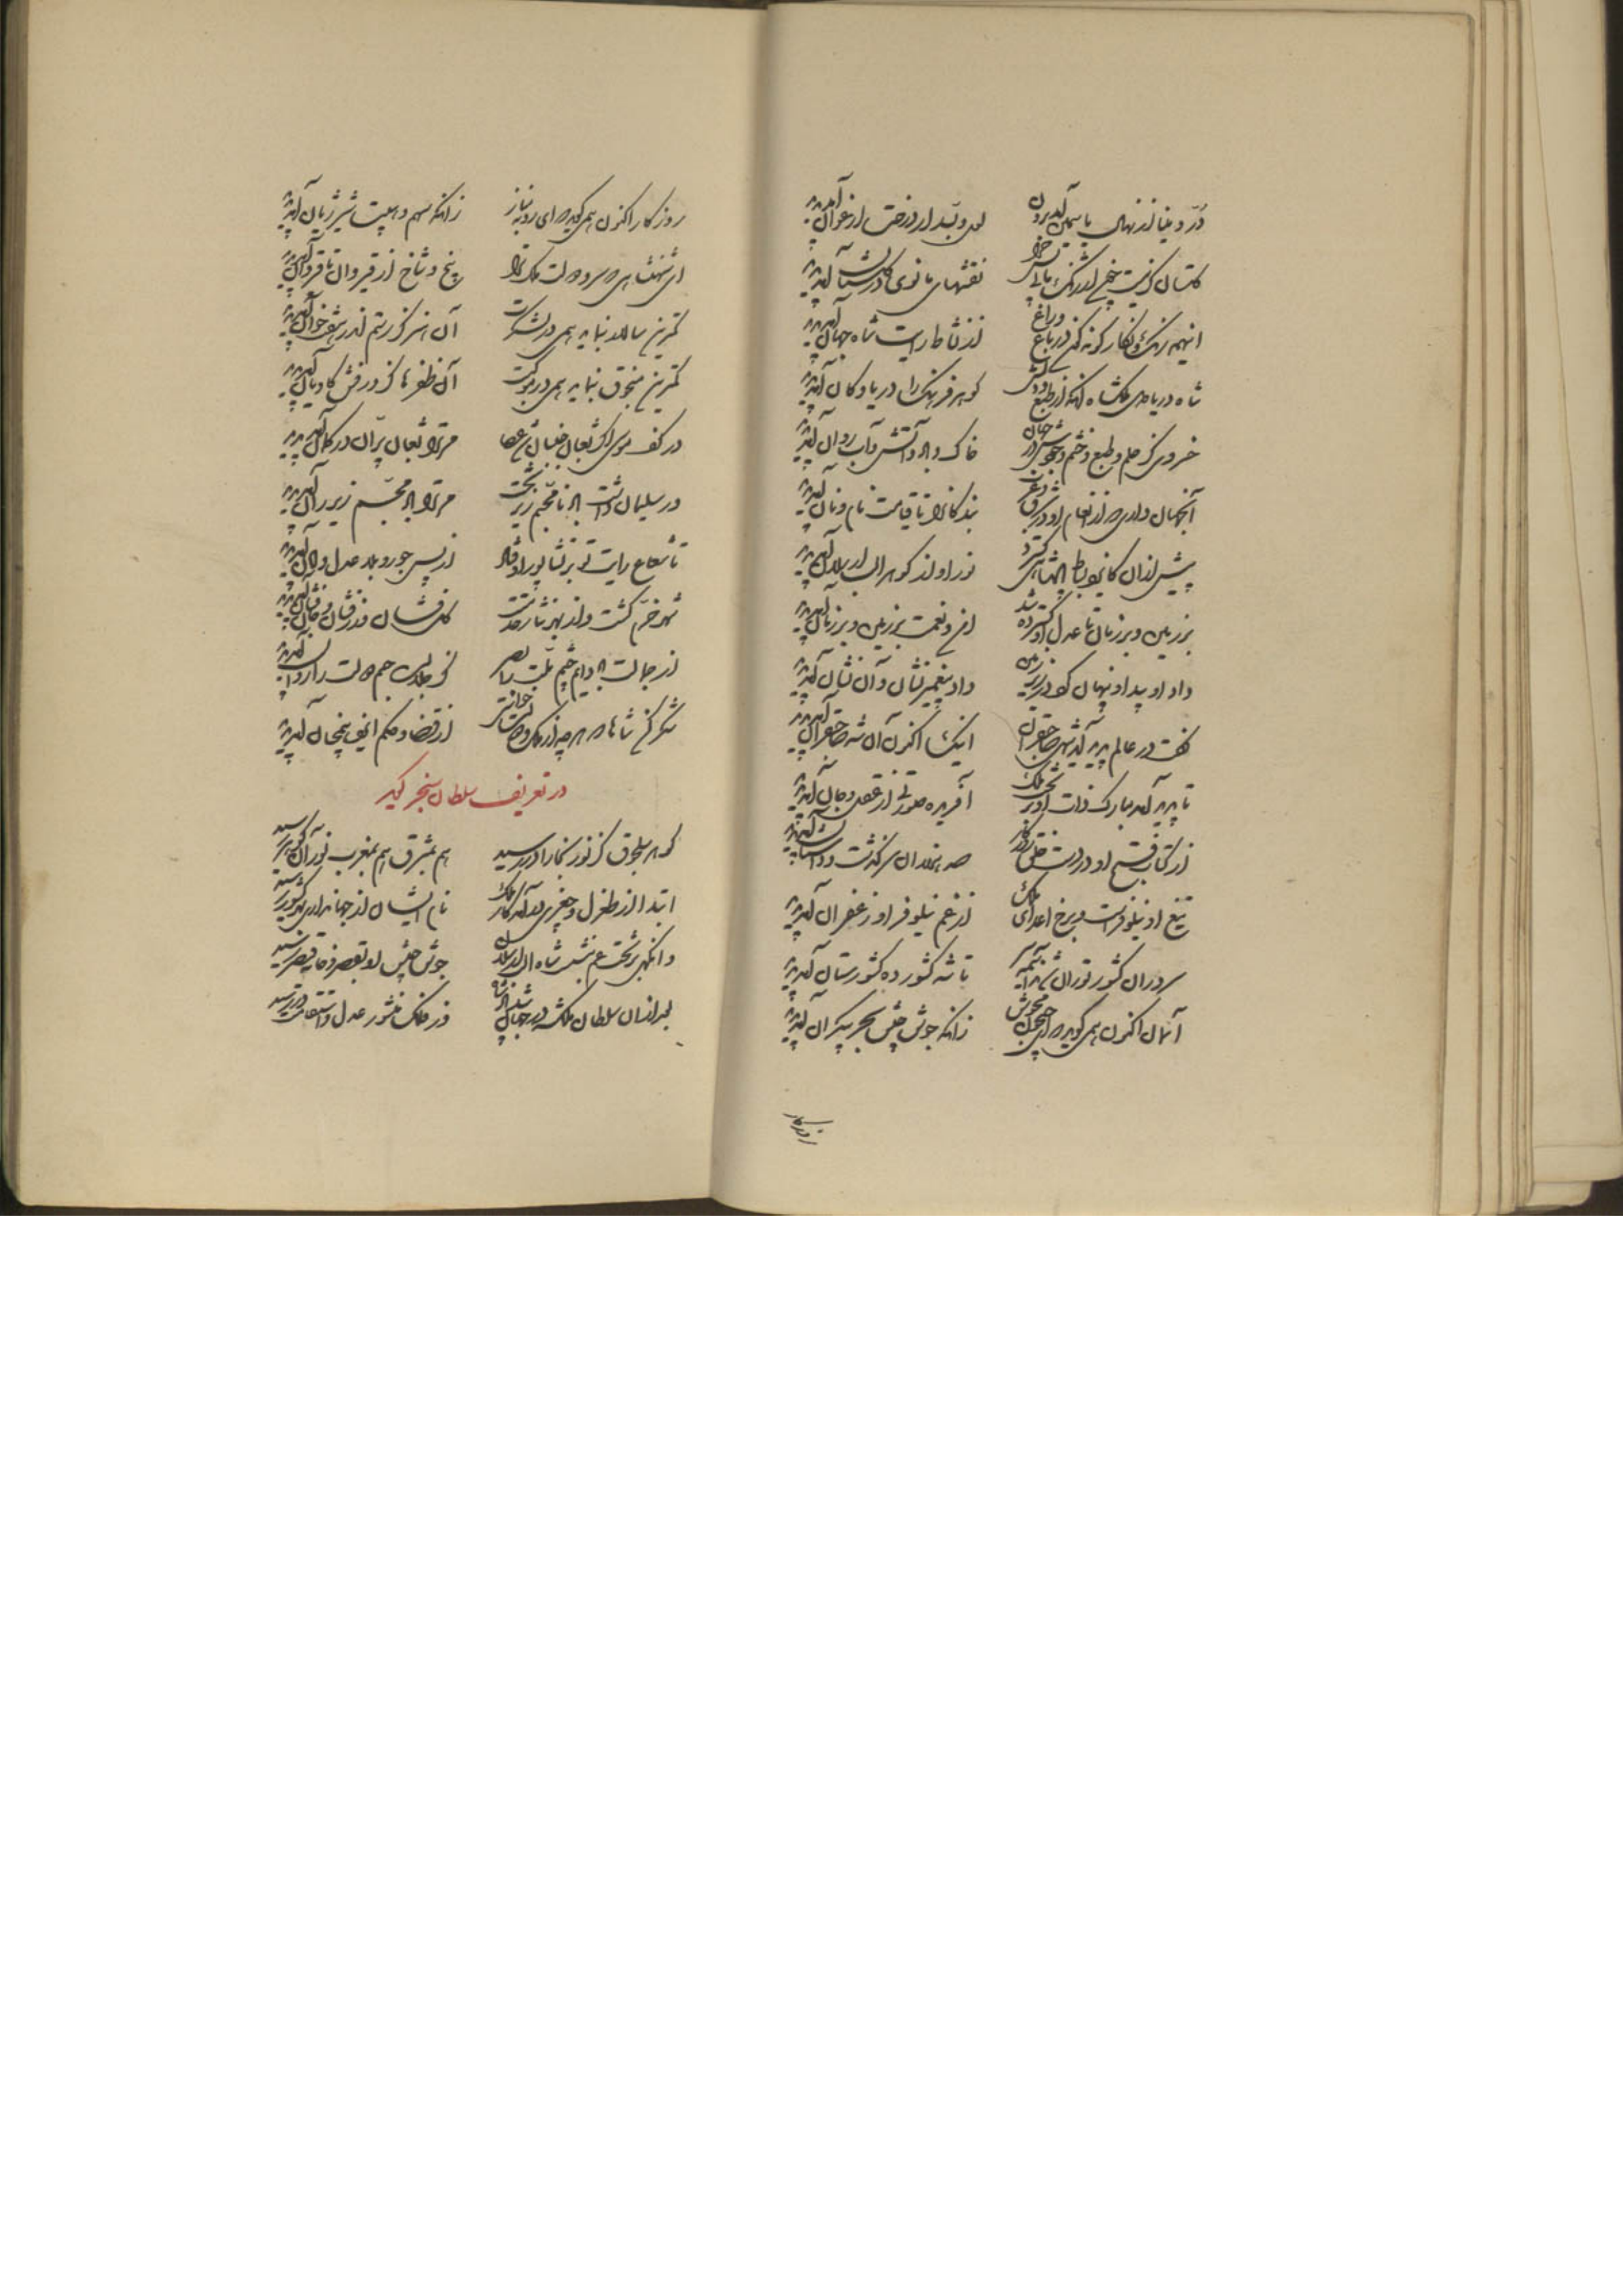 دُرّ و مینا از نهال یاسمن آمد برون لعل و بسد از درخت ارغوان آمد پدید
گلستان گر نیست چرخ اندر نقشهای مانوی در گلستان آمد پدید
اینهمه رنگ و نگار گونه گون در باغ و راغ از نشاط رایت شاه جهان آمد پدید
شاه دریا دل ملکشاه آنکه از طبع و دلش گوهر فرهنگ را دریا و کان آمد پدید
خسروی کز حلم و طبع و خشم و جودش در جهان خاک و باد و آتش و آب روان آمد پدید
آنجهان داری که از انعام او در شرق و غرب بندگانرا تا قیامت نام و نان آمد پدید
پیش از آن کایزد بساط پادشاهی گسترد نور او از گوهر الب ارسلان آمد پدید
بر زمین و بر زمان تا عدل او گسترده شد امن و نعمت بر زمین و بر زمان آمد پدید
داد او پیدا و پنهان کرد در زیر زمین داد پیغمبر نشان و آن نشان آمد پدید
گفت در عالم پدید آید شهی صاحبقران اینک اکنون آن شه صاحبقران آمد پدید
تا پدید آمد مبارک ذات او بر تخت ملک آفریده صورتی از عقل و جان آمد پدید
از کتاب فتح او در دست خلق روزگار صد هزاران سرگذشت و داستان آمد پدید
تیغ او نیلوفرست و بر رخ اعدای ملک از غم نیلوفر او زعفران آمد پدید
سروران کشور توران شدند تا شه کشور ده کشورستان آمد پدید
آسمان اکنون همی گوید که ای زانکه جوش جیش بحر بیکران آمد پدید
روزگار
روزگار اکنون همی گوید که ای روبه نیاز زانکه سهم و هیبت شیر ژیان آمد پدید
ای شهنشاهی که سرو دولت ملک ترا بیخ و شاخ از قیروان تا قیروان آمد پدید
کمترین سالار بنماید همی در لشکرت آن هنر کز رستم اندر هفتخوان آمد پدید
کمترین منجوق بنماید همی در موکبت آن ظفرها کز درفش کاویان آمد پدید
در کف موسی اگر ثعبان عصا مر ترا ثعبان پران در کمان آمد پدید
ور سلیمان داشت باد نامجسم زیر تخت مر ترا باد مجسم زیر ران آمد پدید
تا شعاع رایت تو بر نشابور اوفتاد از پس جور و بلا عدل و امان آمد پدید
شهر خرم گشت و از بهر نثار خدمتت گل فشان و زر فشان و جان فشان آمد پدید
از جمالت باد دایم چشم ملت را بصر کز جلالت جسم دولت را روان آمد پدید
شکر کن شاها که هر چه از ملک و دولت خواستی از قضا و حکم ایزد همچنان آمد پدید
در تعریف سلطان سنجر گوید
گوهر سلجوق کز نور بخارا در رسید هم بمشرق هم بمغرب نور آن گوهر رسید
ابتدا از طغرل و چغری در آمد کار ملک نام ایشان از جهانداری بهر کشور رسید
وانگهی بر تخت عم بنشست شاه الب ارسلان جوش جیش او بقصر و خانه قیصر رسید
بعد از ایشان سلطان ملکشه در جهان شد پادشاه در فلک منشور عدل و استقامت در رسید